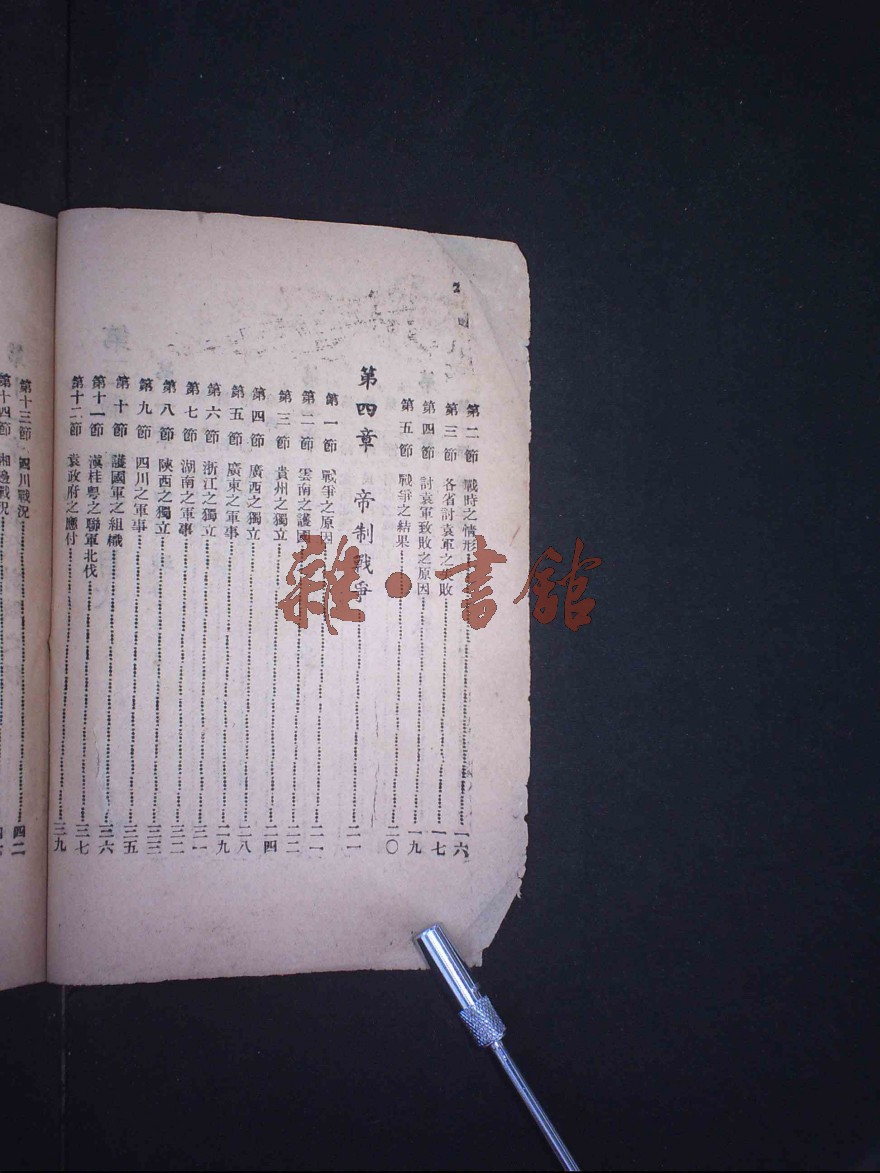 2
第二節 戰時之情形……一六
第三節 各省討袁軍之敗……一七
第四節 討袁軍致敗之原因……一九
第五節 戰爭之結果……二〇
第四章 帝制戰爭……二一
第一節 戰爭之原因……二一
第二節 雲南之護國……二二
第三節 貴州之獨立……二四
第四節 廣西之獨立……二八
第五節 廣東之軍事……二九
第六節 浙江之獨立……三一
第七節 湖南之軍事……三二
第八節 陝西之獨立……三三
第九節 四川之軍事……三五
第十節 護國軍之組織……三六
第十一節 滇桂粵之聯軍北伐……三七
第十二節 袁政府之應付……三九
第十三節 四川戰況……四二
第十四節 湘邊戰況……四
雜·書館